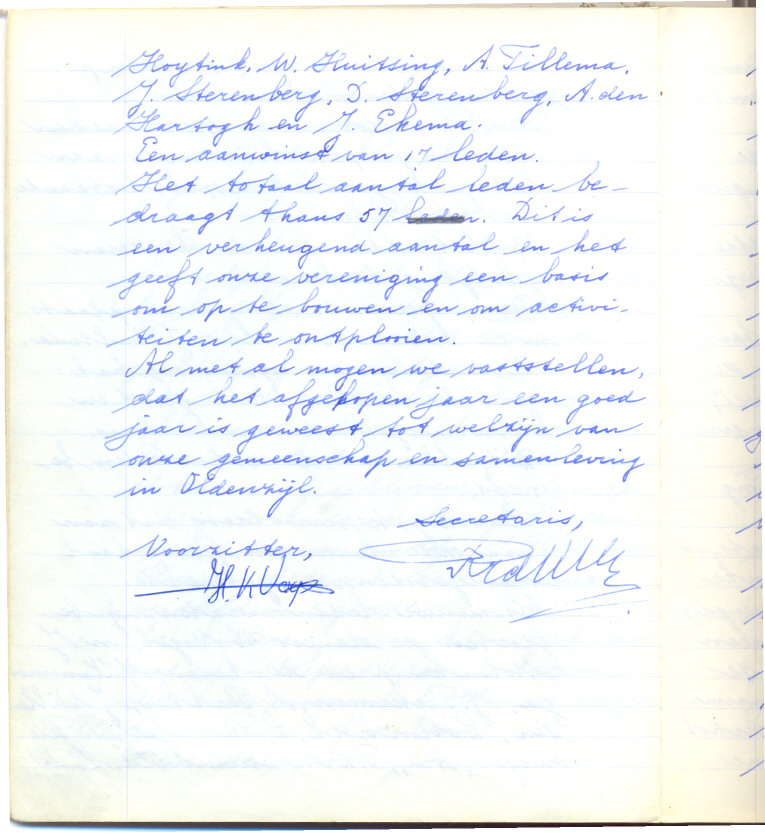 Hoytink, W. Huitsing, A. Tillema,
J. Sterenberg, D. Sterenberg, A. den
Hartogh en J. Ekema.
Een aanwinst van 17 leden.
Het totaal aantal leden be-
draagt thans 57 leden. Dit is
een verheugend aantal en het
geeft onze vereniging een basis
om op te bouwen en om activi-
teiten te ontplooien.
Al met al mogen we vaststellen,
dat het afgelopen jaar een goed
jaar is geweest tot welzijn van
onze gemeenschap en samenleving
in Oldenzijl.
Secretaris,
Voorzitter,